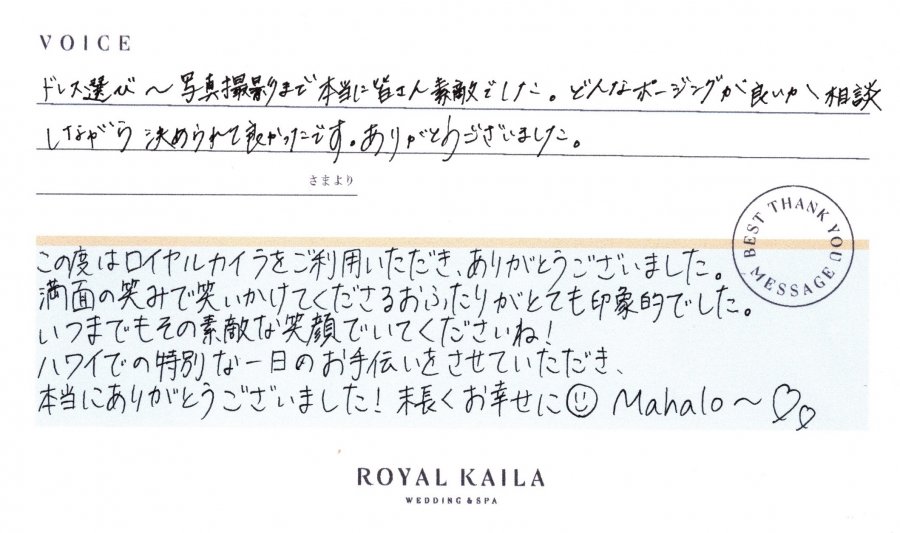 VOICE
ドレス選び〜写真撮影まで本当に皆さん素敵でした。どんなポージングが良いか、相談
しながら決められて良かったです。ありがとうございました。
さまより
BEST THANK YOU MESSAGE
この度はロイヤルカイラをご利用いただき、ありがとうございました。
満面の笑みで笑いかけてくださるおふたりがとても印象的でした。
いつまでもその素敵な笑顔でいてくださいね!
ハワイでの特別な一日のお手伝いをさせていただき、
本当にありがとうございました!末長くお幸せに☺ Mahalo〜♡♡
ROYAL KAILA
WEDDING & SPA